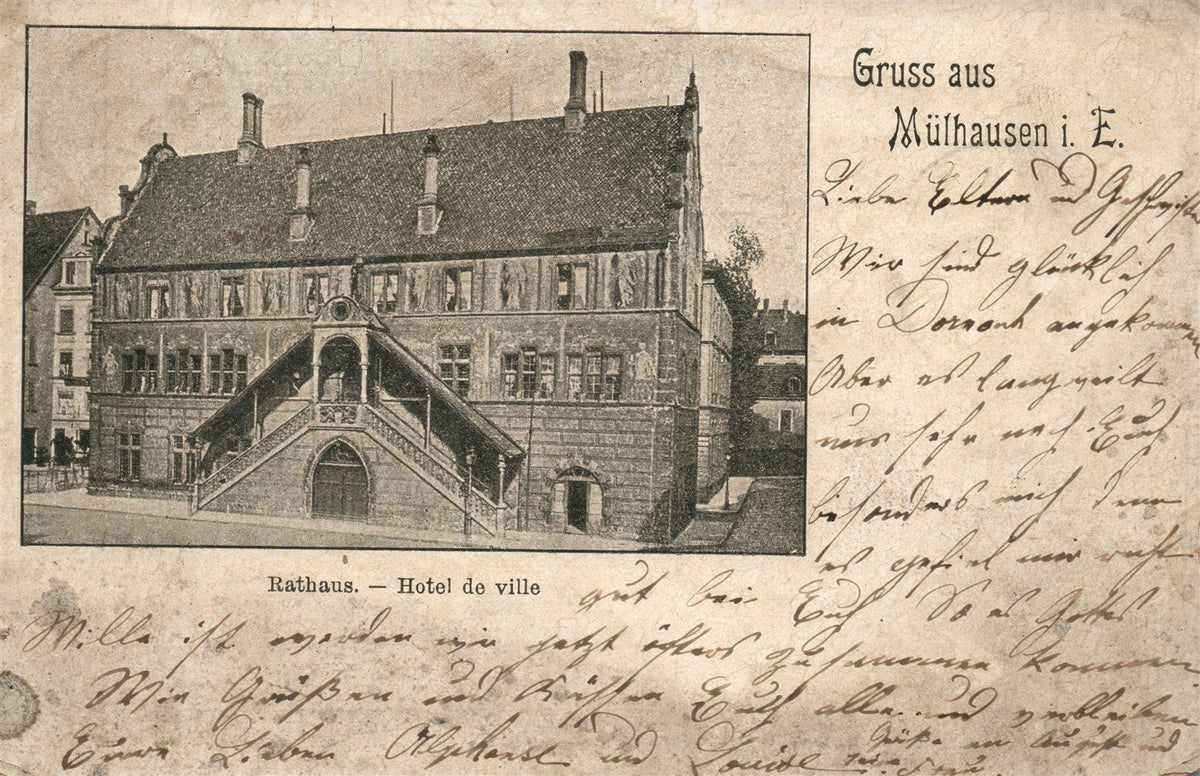 Gruss aus
Mülhausen i. E.
Liebe Eltern und Geschwister
Wir sind glücklich
in Dornach angekommen
Aber es langweilt
uns sehr nach Euch
besonders mich denn
es gefiel mir recht
Rathaus. — Hotel de ville
gut bei Euch. So es Gottes
Wille ist werden wir jetzt öfters zusammen kommen
Wir Grüßen und Küssen Euch alle und verbleiben
Eure Lieben Alphonse und Louise
Grüße an August und
seine Frau